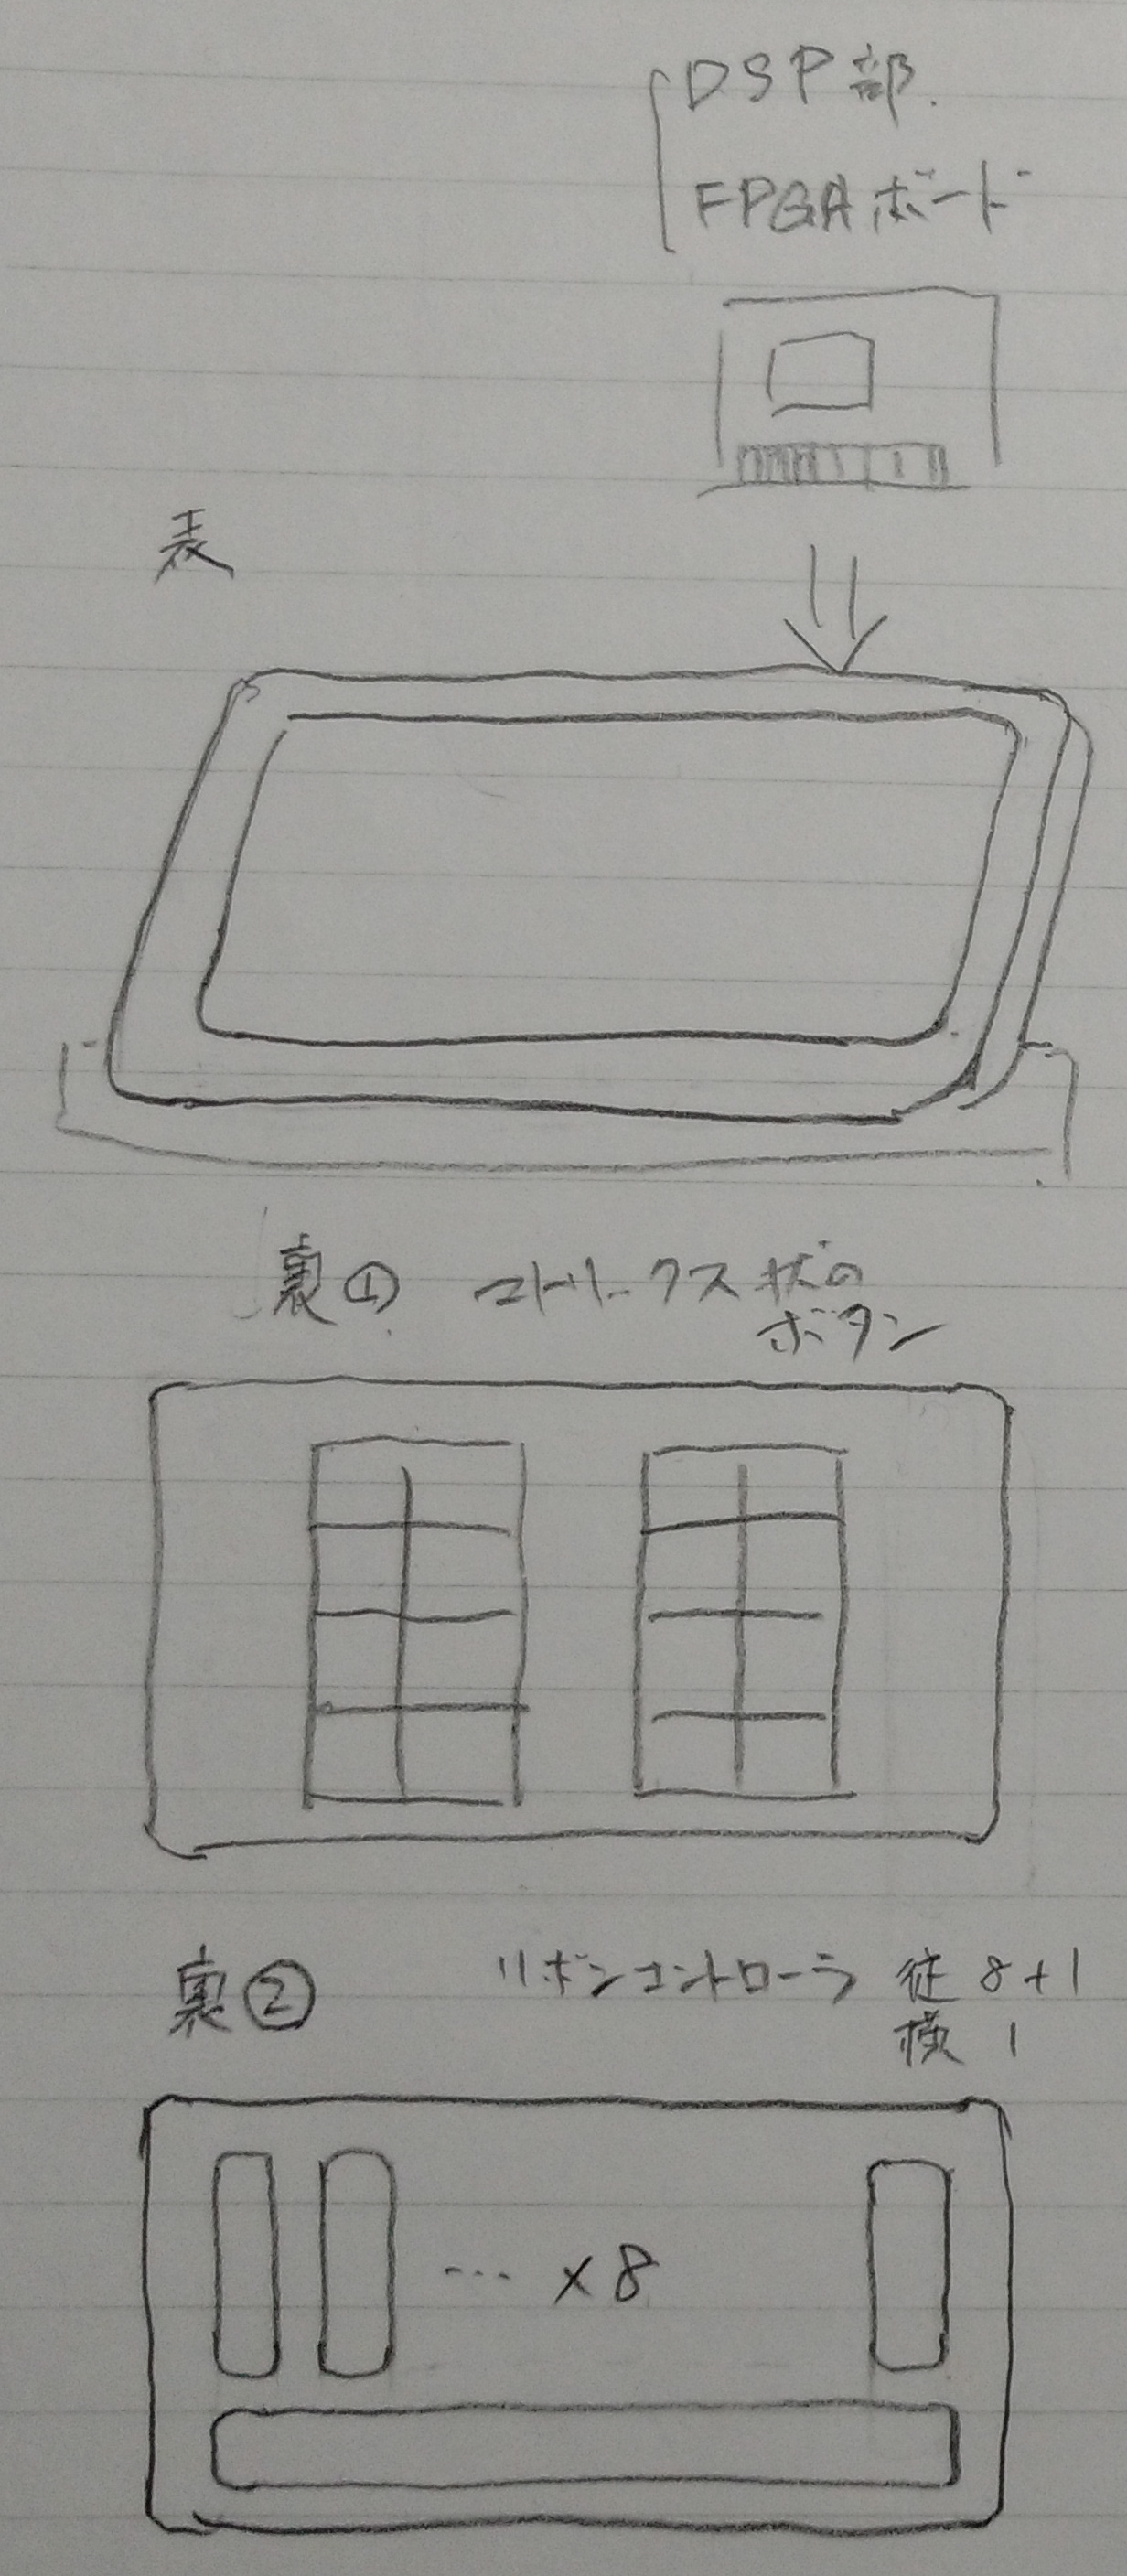 DSP部.
FPGAボード
表
裏① マトリックス状の
ボタン
裏② リボンコントローラ 従 8+1
横 1
… ×8